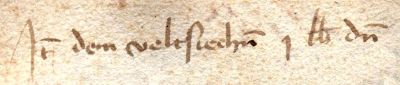 It̄ dem veltsiechn̄ j lb dn̄